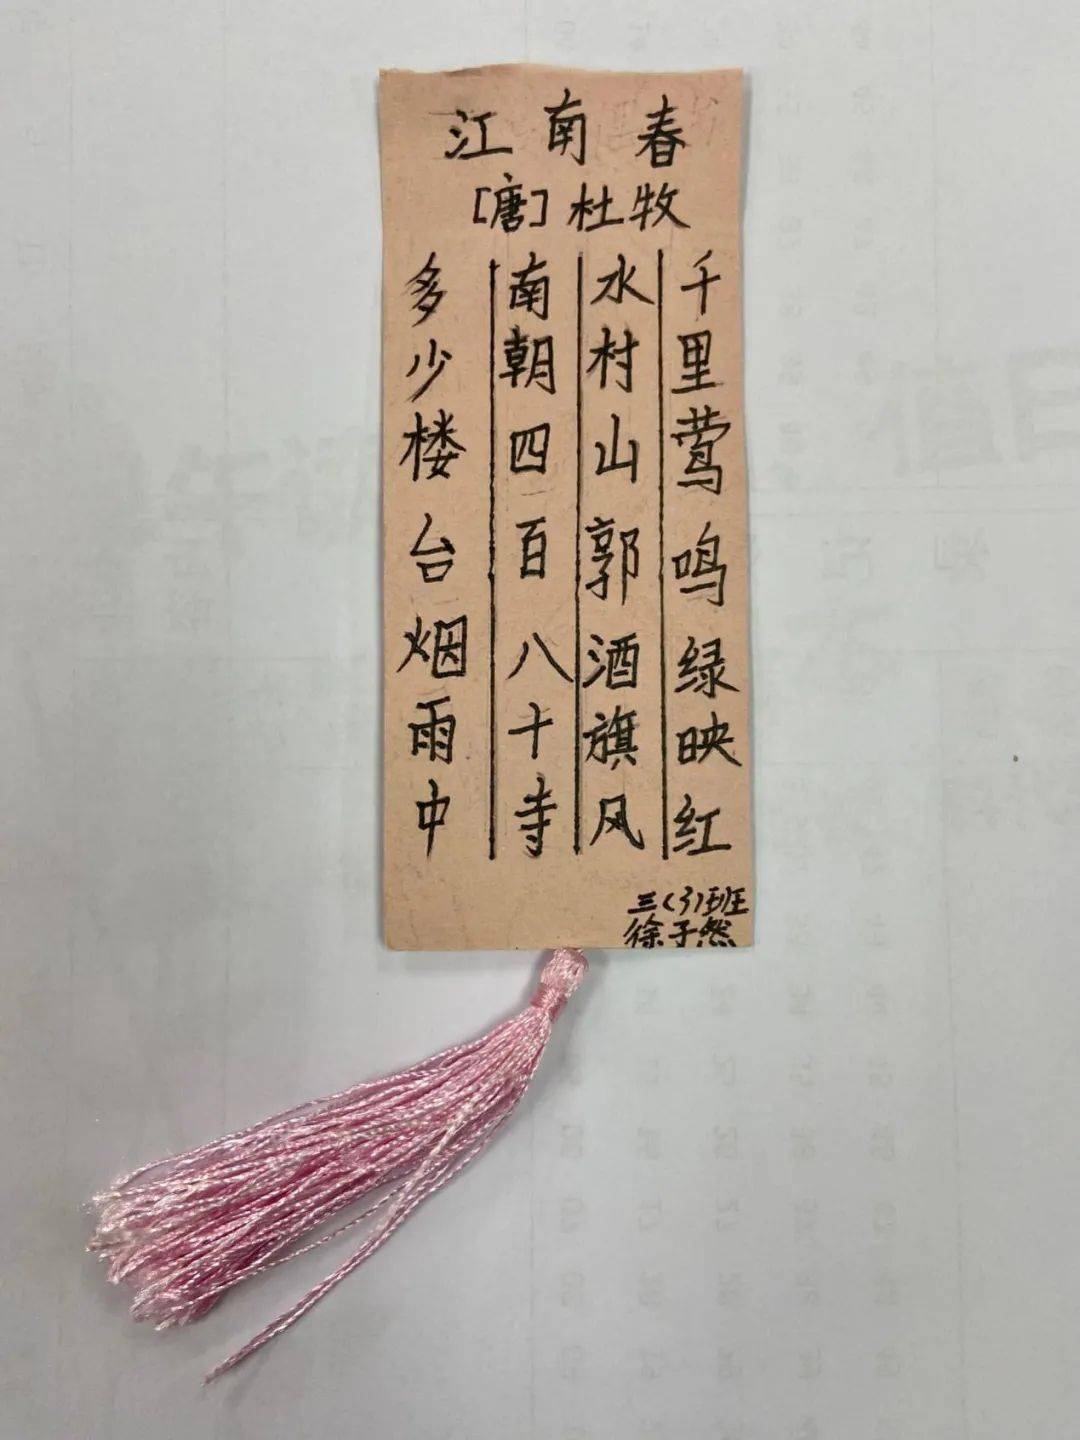 江南春
[唐]杜牧
千里莺鸣绿映红
水村山郭酒旗风
南朝四百八十寺
多少楼台烟雨中
三(3)班
徐子然